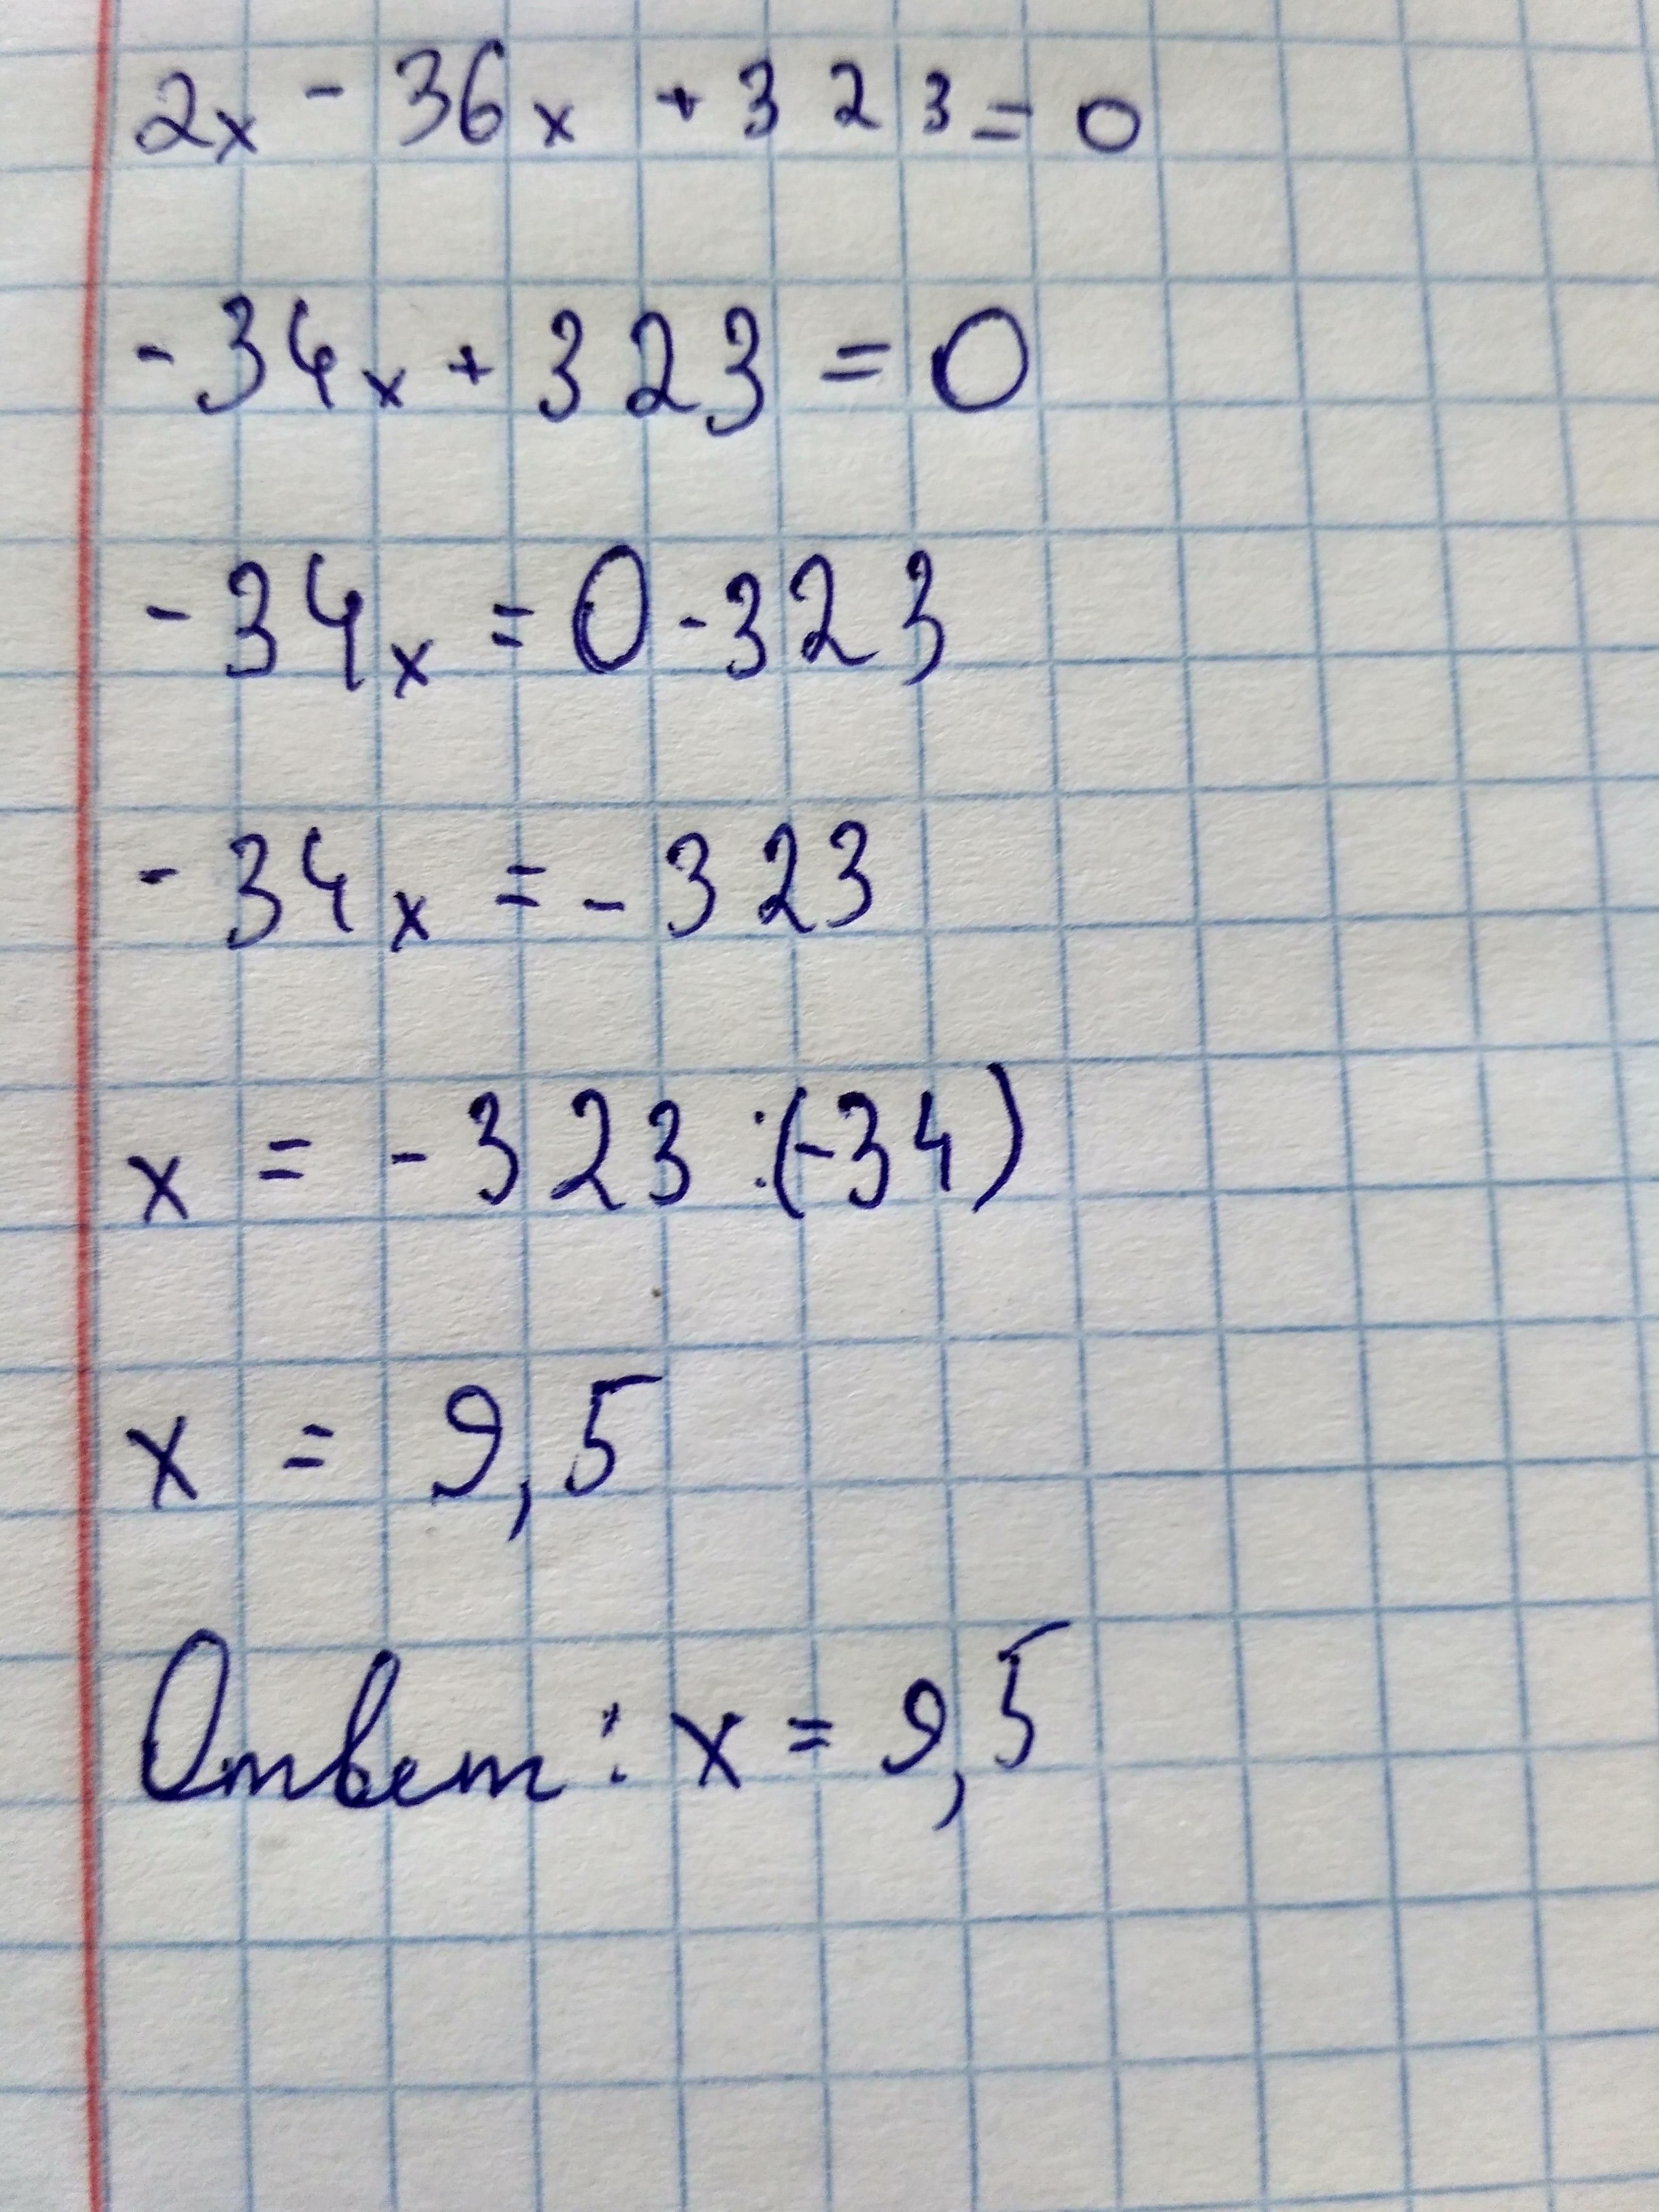 2x - 36x + 323 = 0
-34x + 323 = 0
-34x = 0 - 323
-34x = -323
x = -323 : (-34)
x = 9,5
Ответ: x = 9,5